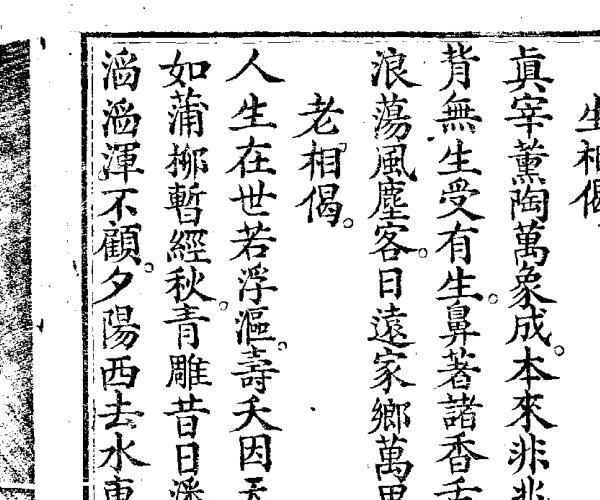 生相偈
眞宰薰陶萬象成。本來非
背無生受有生。鼻著諸香舌
浪蕩風塵客。日遠家鄉萬里
老相偈。
人生在世若浮漚。壽夭因
如蒲柳暫經秋。青雕昔日潘
滔滔渾不顧。夕陽西去水東